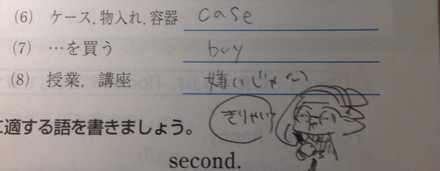 (6) ケース, 物入れ, 容器 case
(7) …を買う buy
(8) 授業, 講座 嫌いじゃ〜
きりゃい
に適する語を書きましょう。
second.